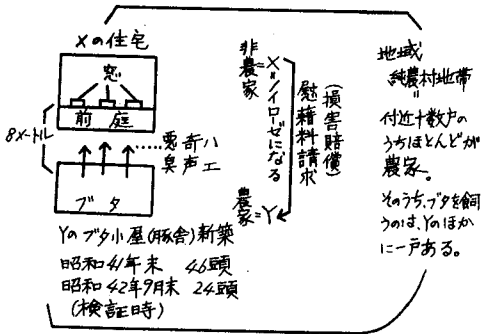 Xの住宅
窓
前庭
8メートル
悪臭
奇声
ハエ
ブタ
Yのブタ小屋(豚舎)新築
昭和41年末 46頭
昭和42年9月末 24頭
(検証時)
非農家=X
ノイローゼになる
慰藉料請求
(損害賠償)
農家=Y
地域
=
純農村地帯
付近十数戸の
うちほとんどが
農家。
そのうち、ブタを飼
うのは、Yのほか
に一戸ある。